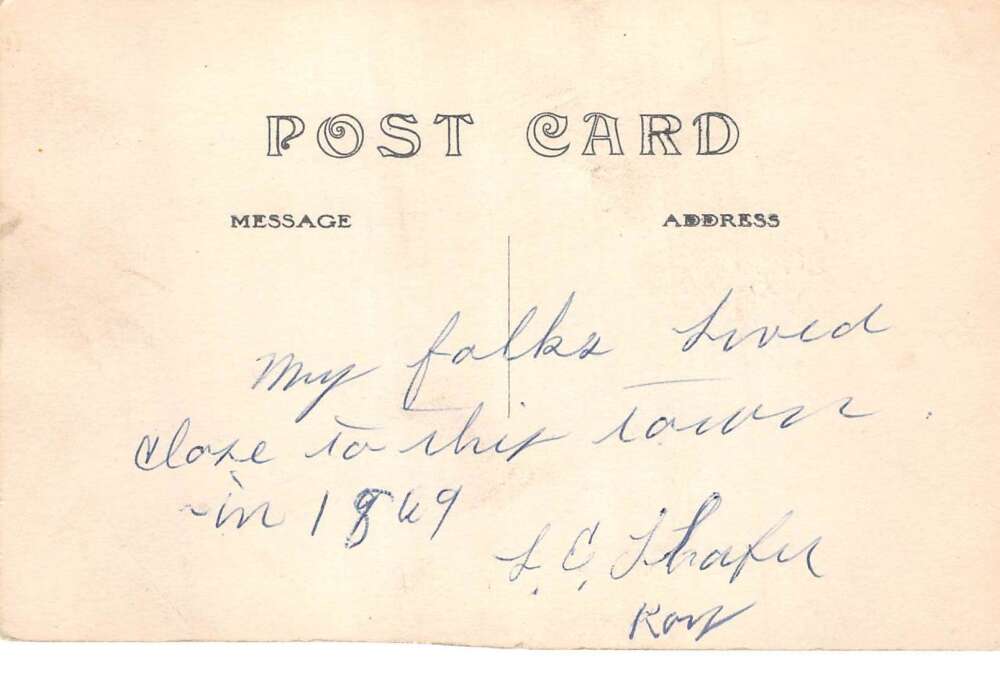 POST CARD
MESSAGE
ADDRESS
My folks Lived
close to this town
in 1869
L. C. Shafer